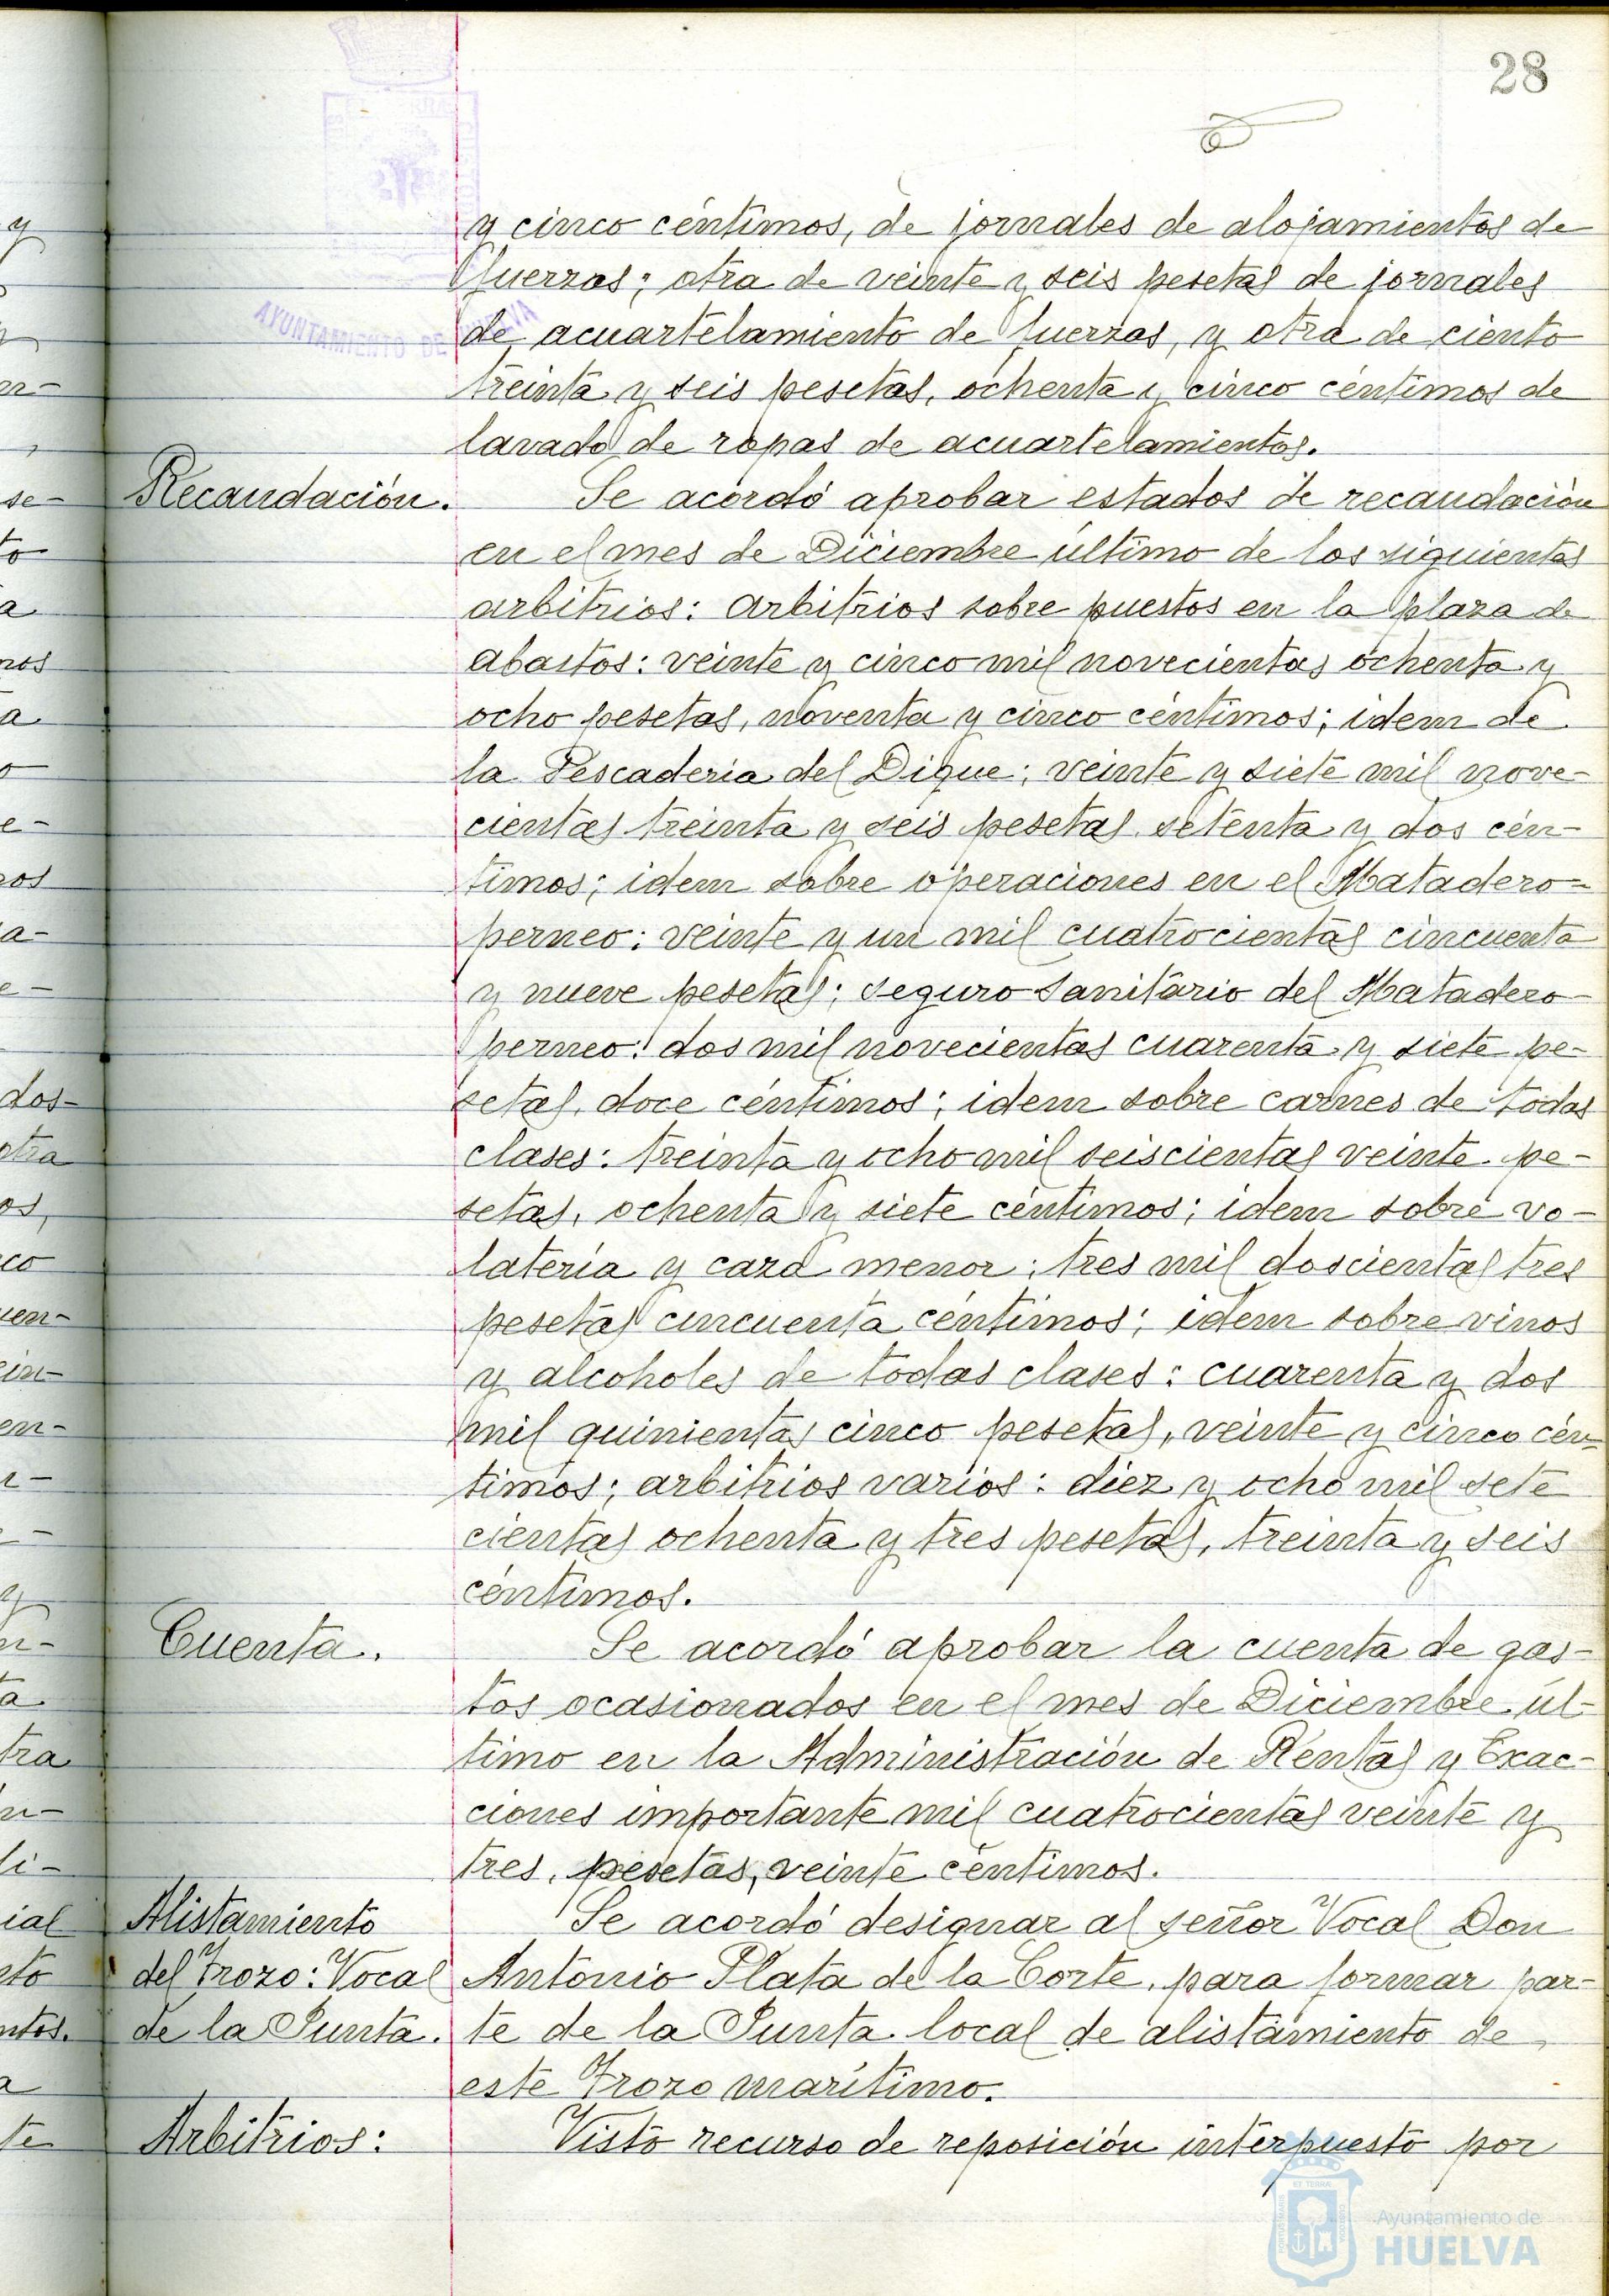 28
y cinco céntimos, de jornales de alojamientos de
fuerzas; otra de veinte y seis pesetas de jornales
de acuartelamiento de fuerzas, y otra de ciento
treinta y seis pesetas, ochenta y cinco céntimos de
lavado de ropas de acuartelamientos.
AYUNTAMIENTO DE HUELVA
Recaudación. Se acordó aprobar estados de recaudación
en el mes de Diciembre último de los siguientes
arbitrios: arbitrios sobre puestos en la plaza de
abastos: veinte y cinco mil novecientas ochenta y
ocho pesetas, noventa y cinco céntimos; idem de
la Pescaderia del Dique: veinte y siete mil nove-
cientas treinta y seis pesetas setenta y dos cén-
timos; idem sobre operaciones en el Matadero-
perneo: veinte y un mil cuatrocientas cincuenta
y nueve pesetas; seguro sanitario del Matadero-
perneo: dos mil novecientas cuarenta y siete pe-
setas, doce céntimos; idem sobre carnes de todas
clases: treinta y ocho mil seiscientas veinte pe-
setas, ochenta y siete céntimos; idem sobre vo-
latería y caza menor: tres mil doscientas tres
pesetas cincuenta céntimos; idem sobre vinos
y alcoholes de todas clases: cuarenta y dos
mil quinientas cinco pesetas, veinte y cinco cén-
timos; arbitrios varios: diez y ocho mil sete
cientas ochenta y tres pesetas, treinta y seis
céntimos.
Cuenta. Se acordó aprobar la cuenta de gas-
tos ocasionados en el mes de Diciembre úl-
timo en la Administración de Rentas y Exac-
ciones importante mil cuatrocientas veinte y
tres, pesetas, veinte céntimos.
Alistamiento Se acordó designar al señor Vocal Don
del Trozo: Vocal Antonio Plata de la Corte, para formar par-
de la Junta. te de la Junta local de alistamiento de
este Trozo marítimo.
Arbitrios: Visto recurso de reposición interpuesto por
Ayuntamiento de
HUELVA